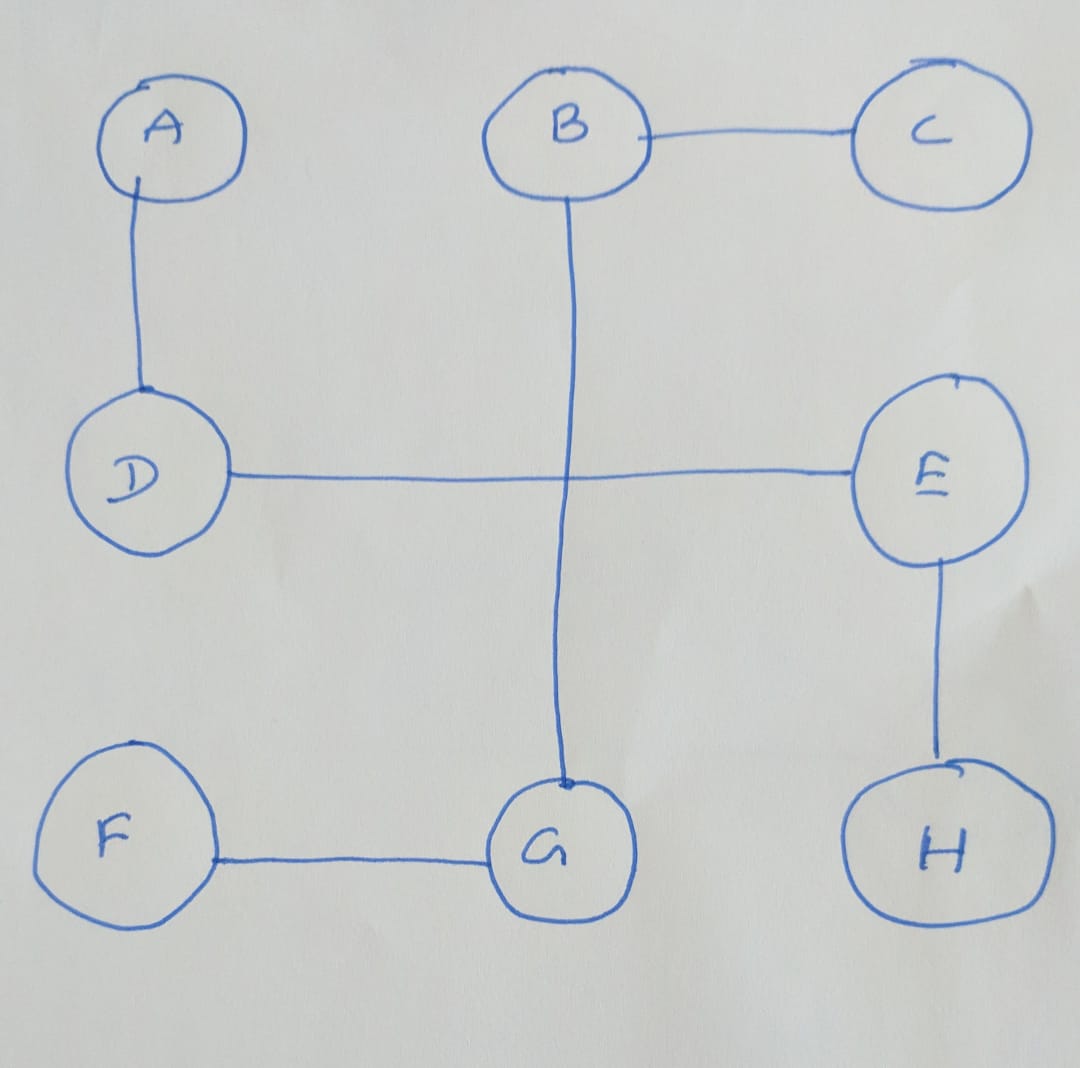 A B C
D E
F G H